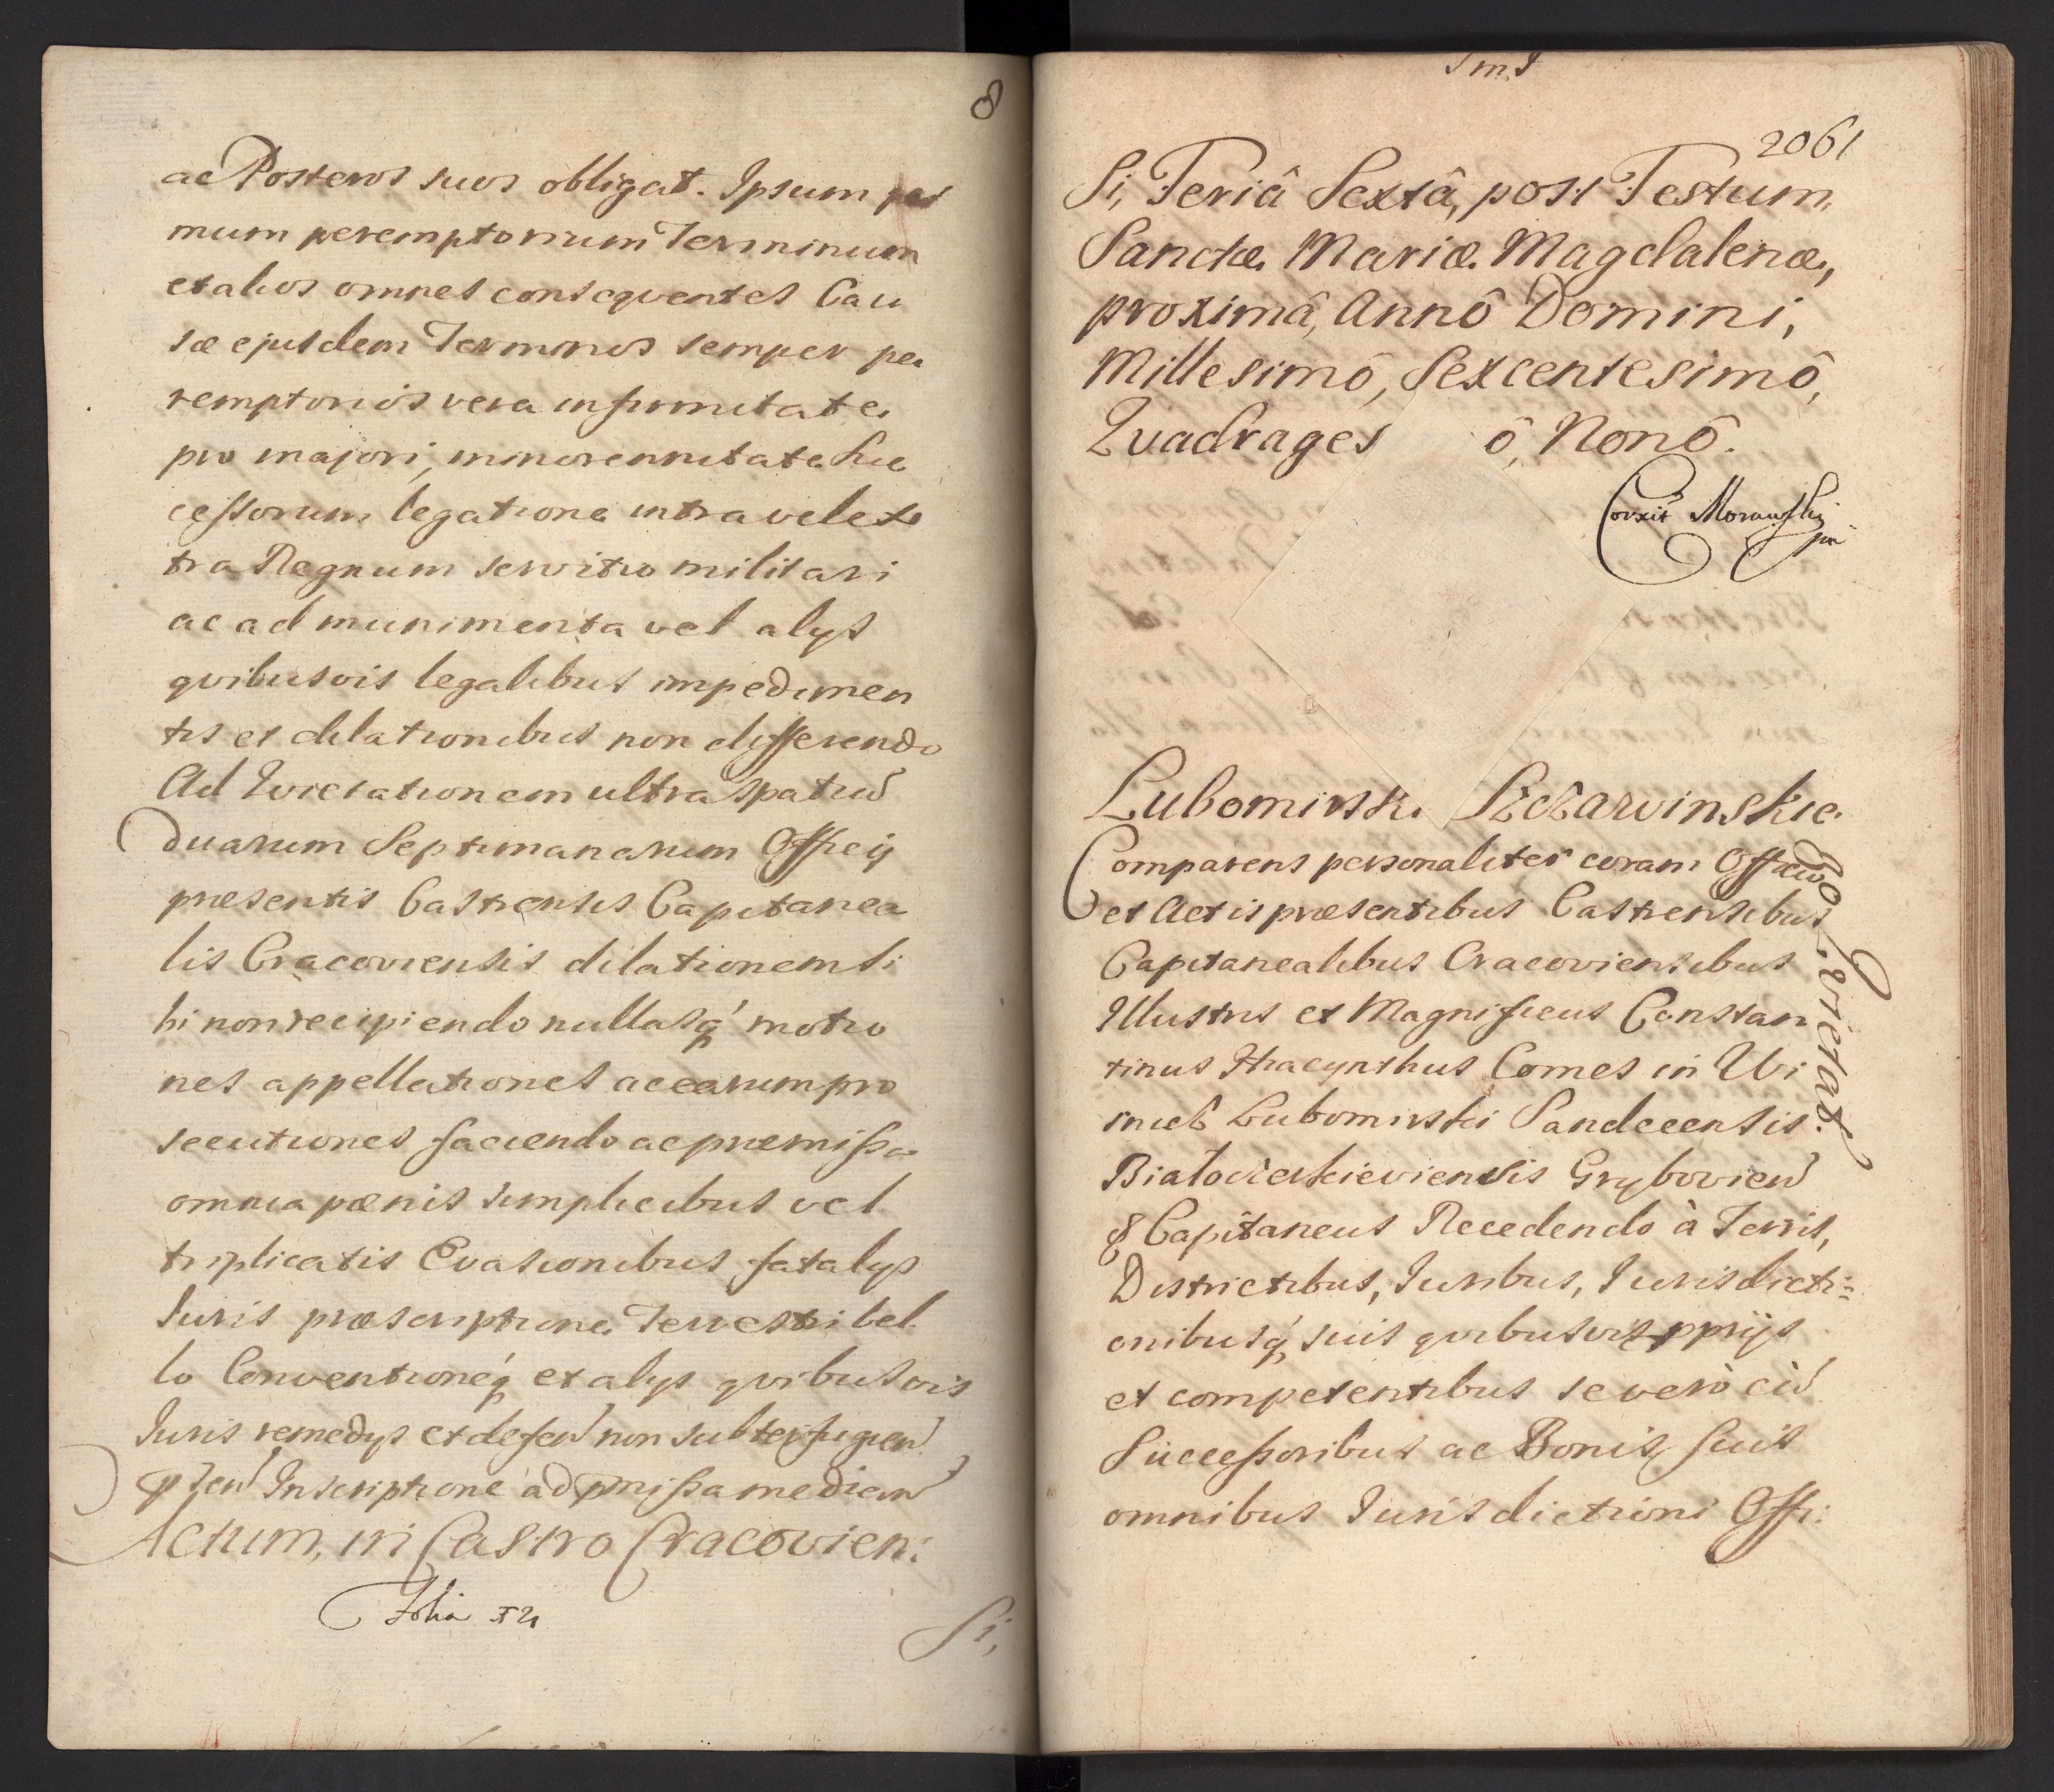 8
ac Posteros suos obligat. Ipsum pri
mum peremptorium Terminum
et alios omnes consequentes Cau
sæ ejusdem Terminos semper pe
remptorios vera infirmitate
pro majori, minorennitate Suc
cessorum legatione intra vel ex
tra Regnum servitio militari
ac ad munimenta vel alys
qvibusvis legalibus impedimen
tis et dilationibus non differendo
Ad Evictationem ultra spatiu
duarum Septimanarum Officij
præsentis Castrensis Capitanea
lis Cracoviensis dilationem si
bi non recipiendo nullasq́ motio
nes appellationes ac earum pro
secutiones faciendo ac præmissa
omnia pænis simplicibus vel
triplicatis Evasionibus fatalys
Juris præscriptione Terrestri bel
lo Conventioneq́ et alys qvibusvis
Juris remedys et defen non subterfugien
pñten Inscriptione ad pmissa median
Actum, in Castro Cracovien:
Folia
Si,
2061
Si, Feriâ Sextâ, post Festum,
Sanctæ Mariæ Magdalenæ,
proximâ, Annô Domini,
Millesimô, Sexcentesimô,
Qvadrages ô, Nonô.
Corxit Morawski
mp
Lubomirski Szczawinskie
Comparens personaliter coram Officio
et Actis præsentibus Castrensibus
Capitanealibus Cracoviensibus
Illustris et Magnificus Constan
tinus Hyacynthus Comes in Wi
snicz Lubomirski Sandecensis
Białocerkieviensis Grybovien
& Capitaneus Recedendo à Terris,
Districtibus, Juribus, Jurisdicti:
onibusq́ suis qvibusvis pprijs
et competentibus se verò cũ
Successoribus ac Bonis suis
omnibus Jurisdictioni Offi:
Evictat